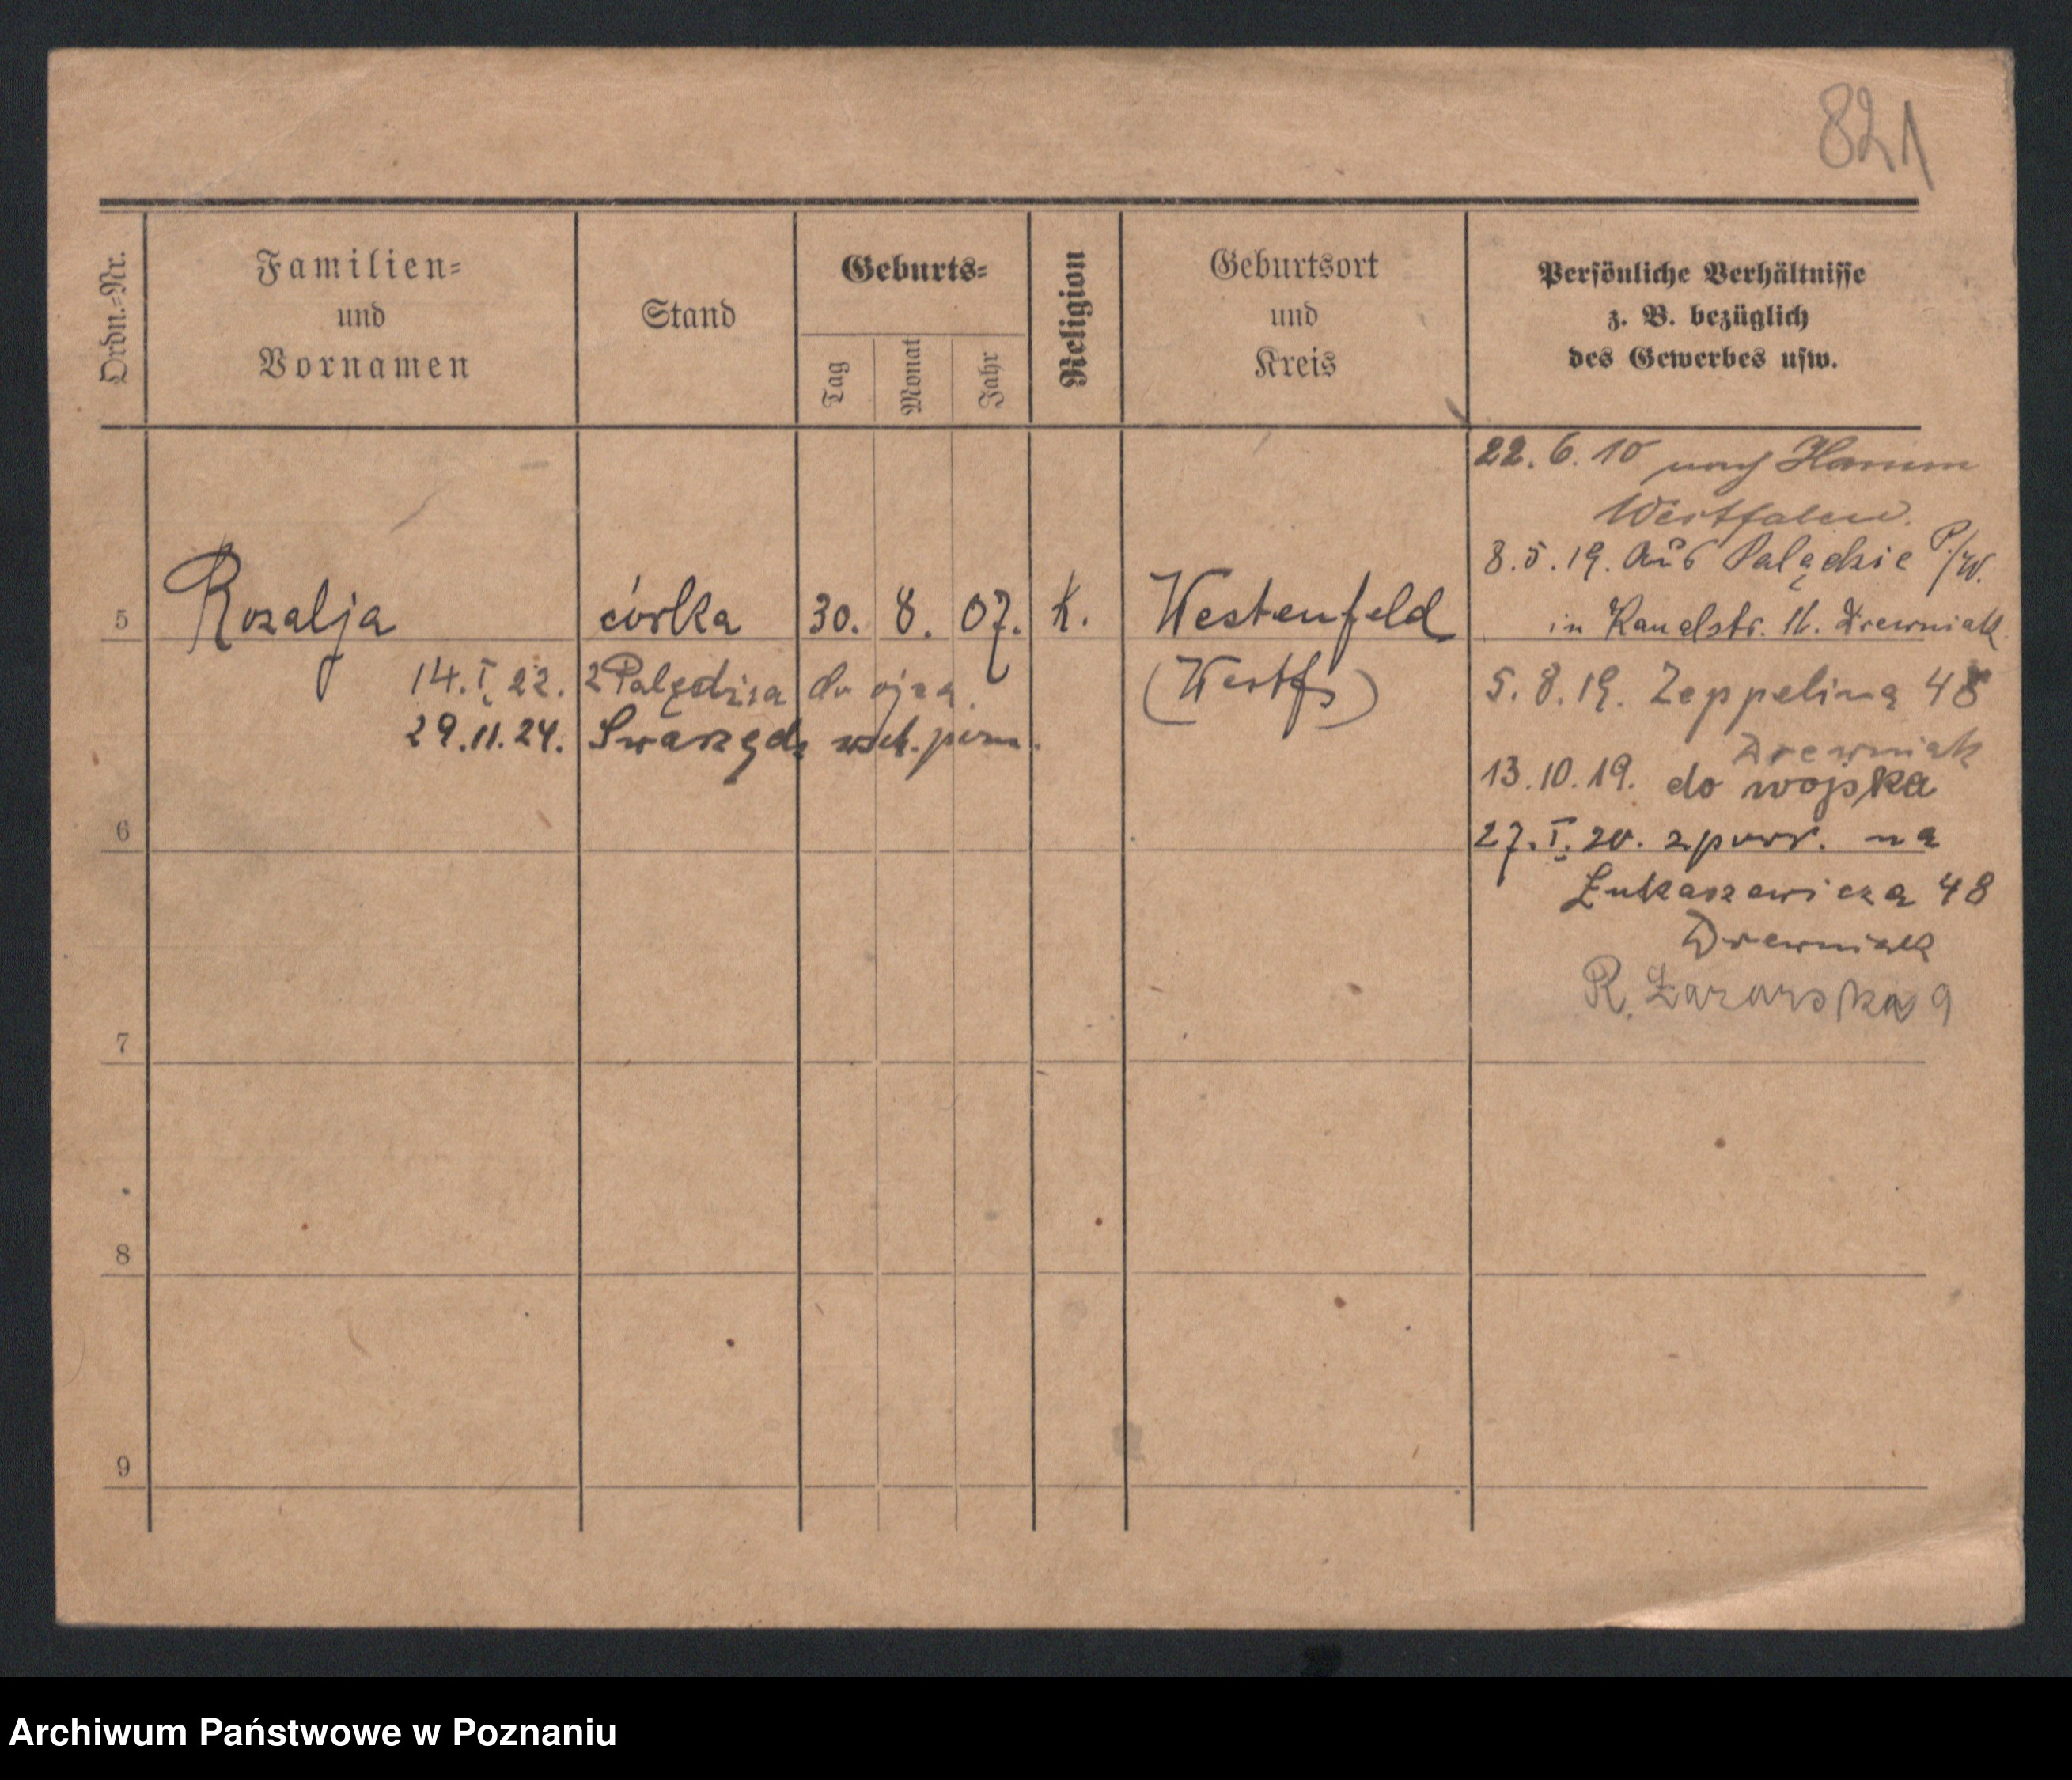 821
Ordn.=Nr.
Familien=
und
Vornamen
Stand
Geburts=
Tag
Monat
Jahr
Religion
Geburtsort
und
Kreis
Persönliche Verhältnisse
z. B. bezüglich
des Gewerbes usw.
22. 6. 10 nach Hamm
Westfalen.
8. 5. 19. aus Palędzie P./W.
in Kanalstr. 16. Drewniak
5. 8. 19. Zeppelina 48
Drewniak
13. 10. 19. do wojska
27. I. 20. z powr. na
Łukaszewicza 48
Drewniak
R. Żarowska 9
5 Rozalja córka 30. 8. 07. k. Westenfeld
(Westf)
14. I. 22. z Palędzia do ojca.
29. 11. 24. Swarzędz
6
7
8
9
Archiwum Państwowe w Poznaniu